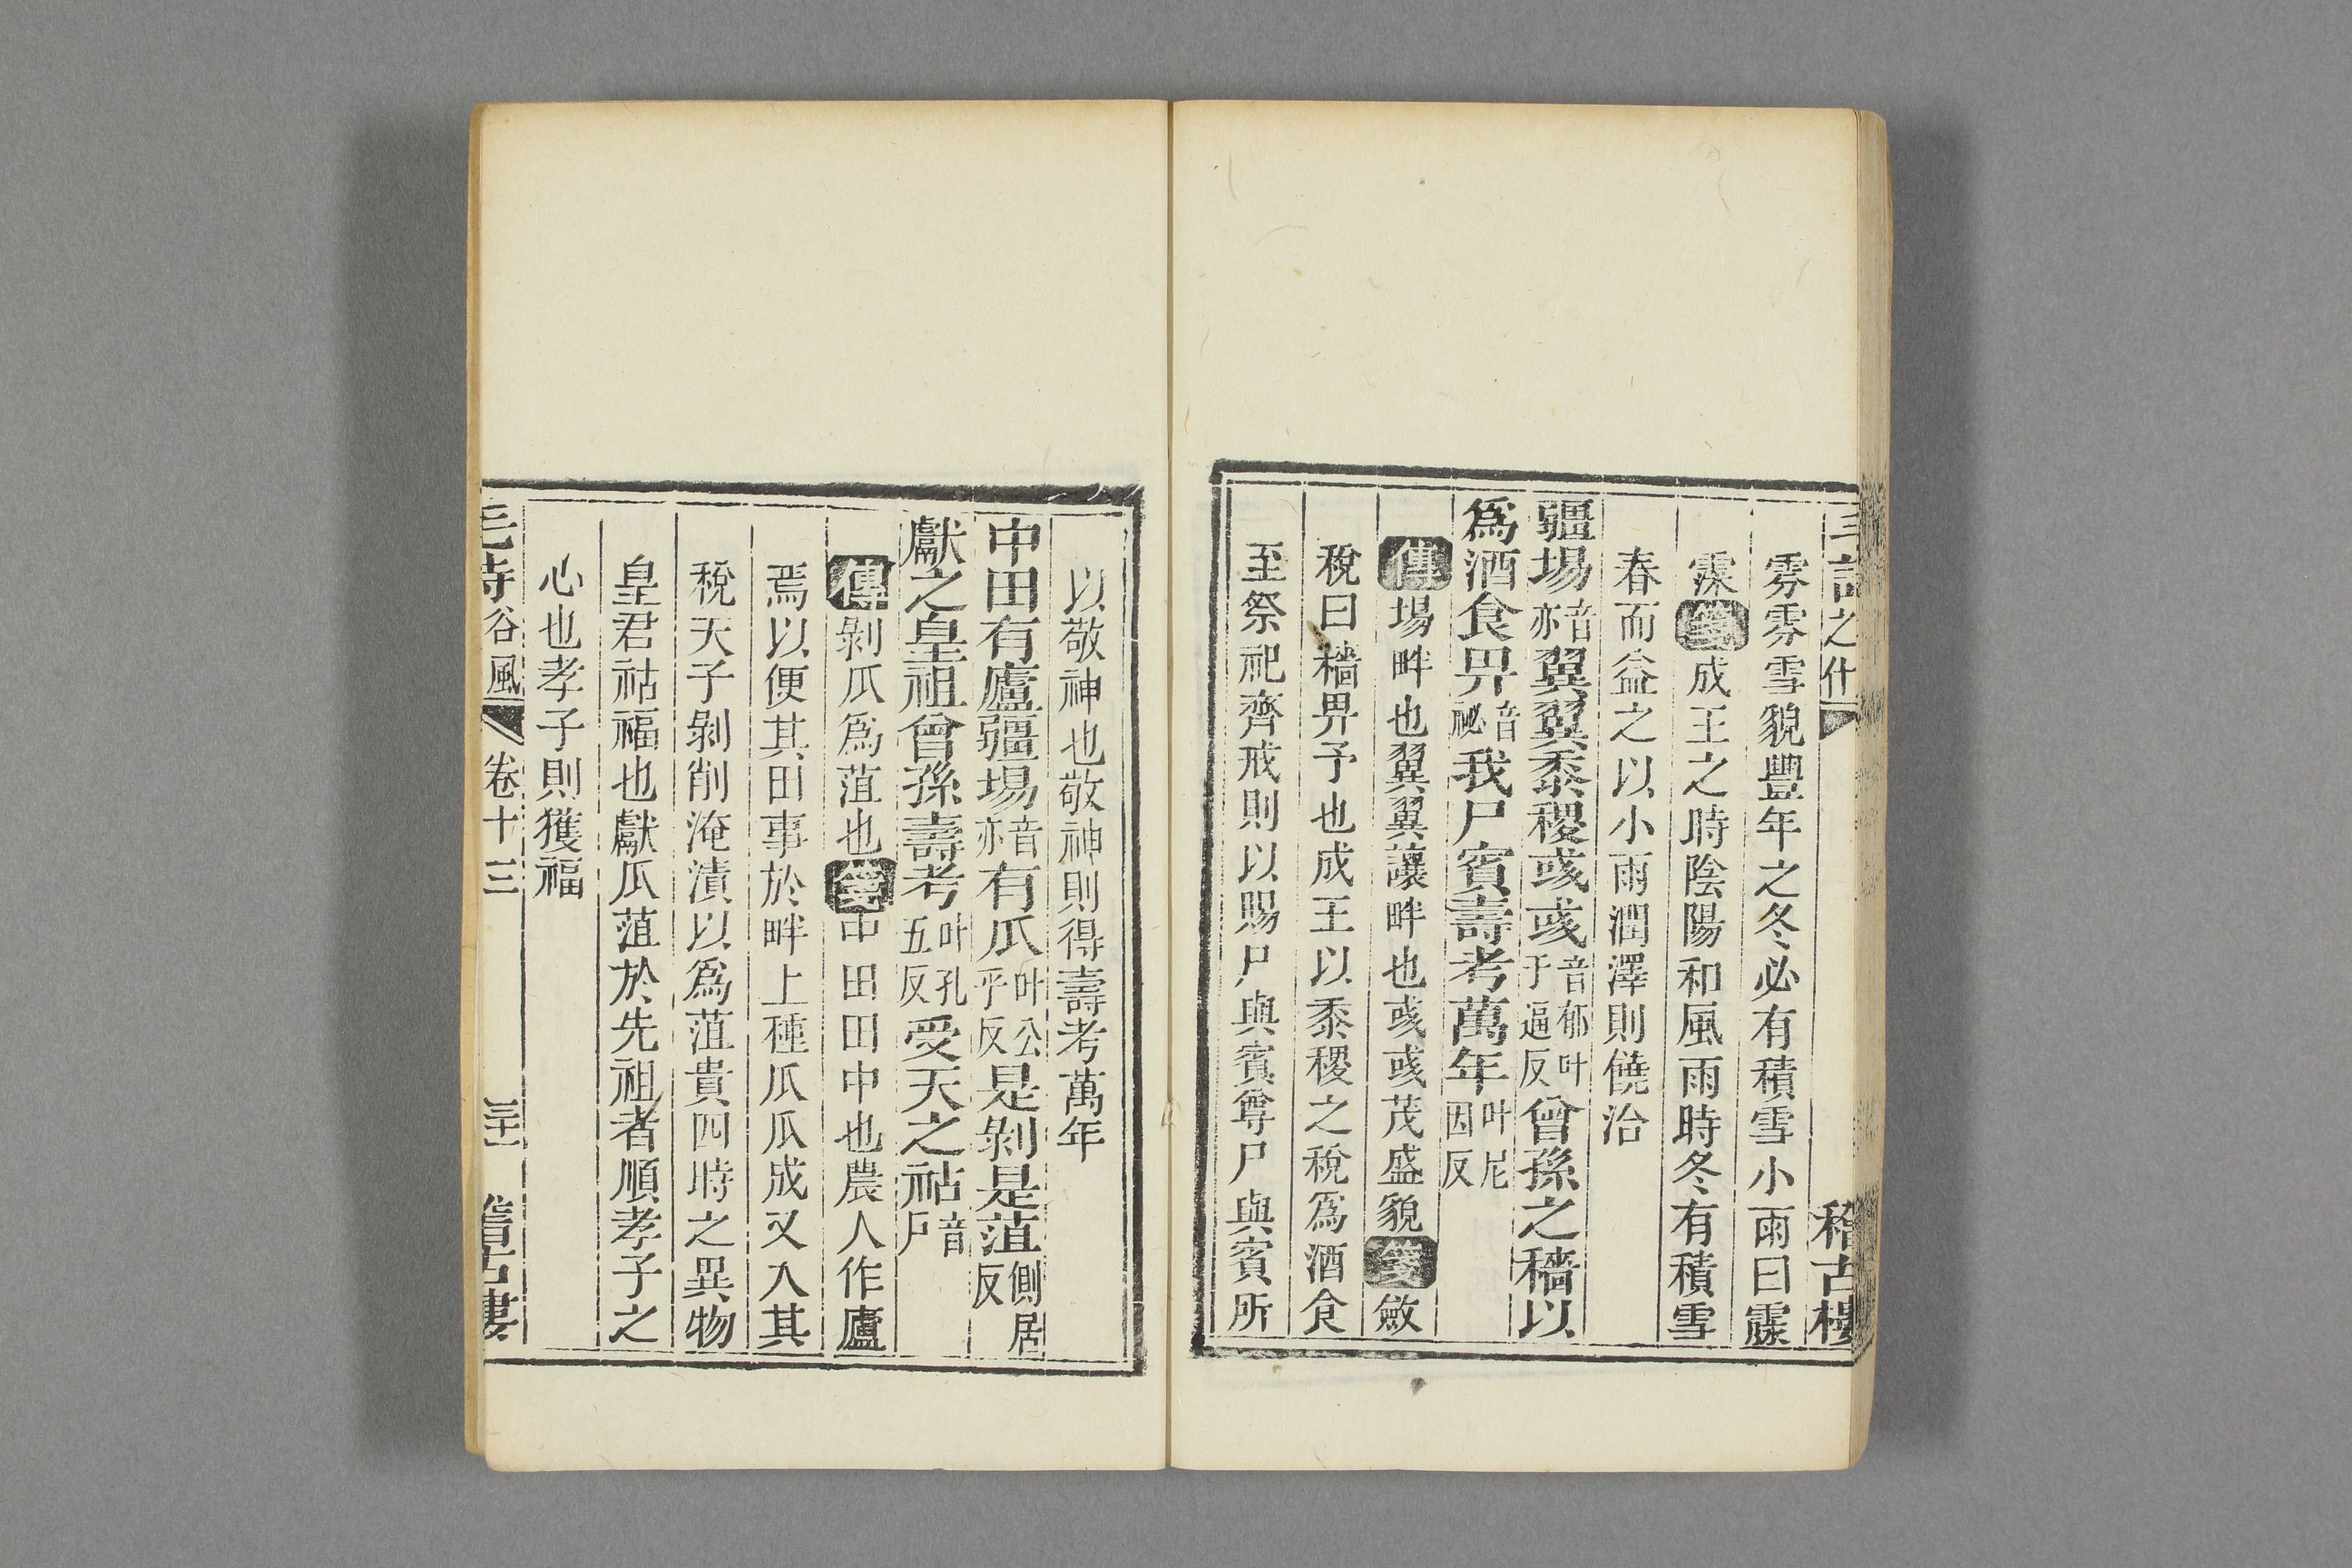 之什 稽古樓
雰雰雪貌豐年之冬必有積雪小雨曰霡
霂箋成王之時陰陽和風雨時冬有積雪
春而益之以小雨潤澤則饒洽
疆埸音亦翼翼黍稷彧彧音郁叶于逼反曾孫之穡以
爲酒食畀音祕我尸賓壽考萬年叶尼因反
傳埸畔也翼翼讓畔也彧彧茂盛貌箋斂
稅曰穡畀予也成王以黍稷之稅爲酒食
至祭祀齊戒則以賜尸與賓尊尸與賓所
以敬神也敬神則得壽考萬年
中田有廬疆埸音亦有瓜叶公乎反是剝是菹側居反
獻之皇祖曾孫壽考叶孔五反受天之祜音戶
傳剝瓜爲菹也箋中田田中也農人作廬
焉以便其田事於畔上種瓜瓜成又入其
稅天子剝削淹漬以爲菹貴四時之異物
皇君祜福也獻瓜菹於先祖者順孝子之
心也孝子則獲福
毛詩谷風 卷十三 稽古樓